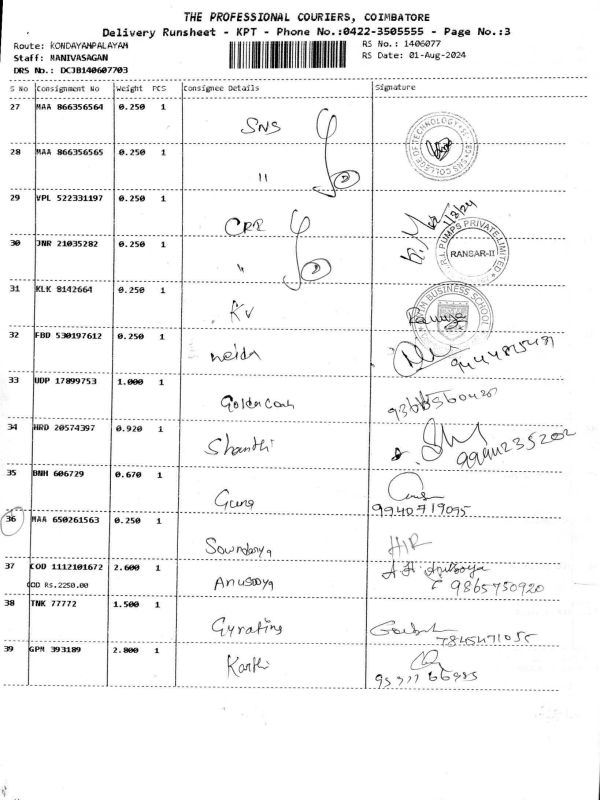 THE PROFESSIONAL COURIERS, COIMBATORE
Delivery Runsheet - KPT - Phone No.:0422-3505555 - Page No.:3
Route: KONDAYAMPALAYAM RS No.: 1406077
Staff: MANIVASAGAN RS Date: 01-Aug-2024
DRS No.: DCJB140607703
S No Consignment No Weight PCS Consignee Details Signature
27 MAA 866356564 0.250 1 SNS
28 MAA 866356565 0.250 1 11
29 VPL 522331197 0.250 1 CRR 1/8/24
30 JNR 21035282 0.250 1 " R.I. PUMPS PRIVATE LIMITED RANSAR-II
31 KLK 8142664 0.250 1 KV BUSINESS SCHOOL
32 FBD 530197612 0.250 1
33 UDP 17899753 1.000 1
34 HRD 20574397 0.920 1 Shanthi 9994235202
35 BNH 606729 0.670 1 Guna 9940719095
36 MAA 650261563 0.250 1 Soundarya H/R
37 COD 1112101672 2.600 1 Anusooya
COD Rs.2250.00 9865750920
38 TNK 77772 1.500 1 Gyrating
39 GPM 393189 2.800 1 Karthi